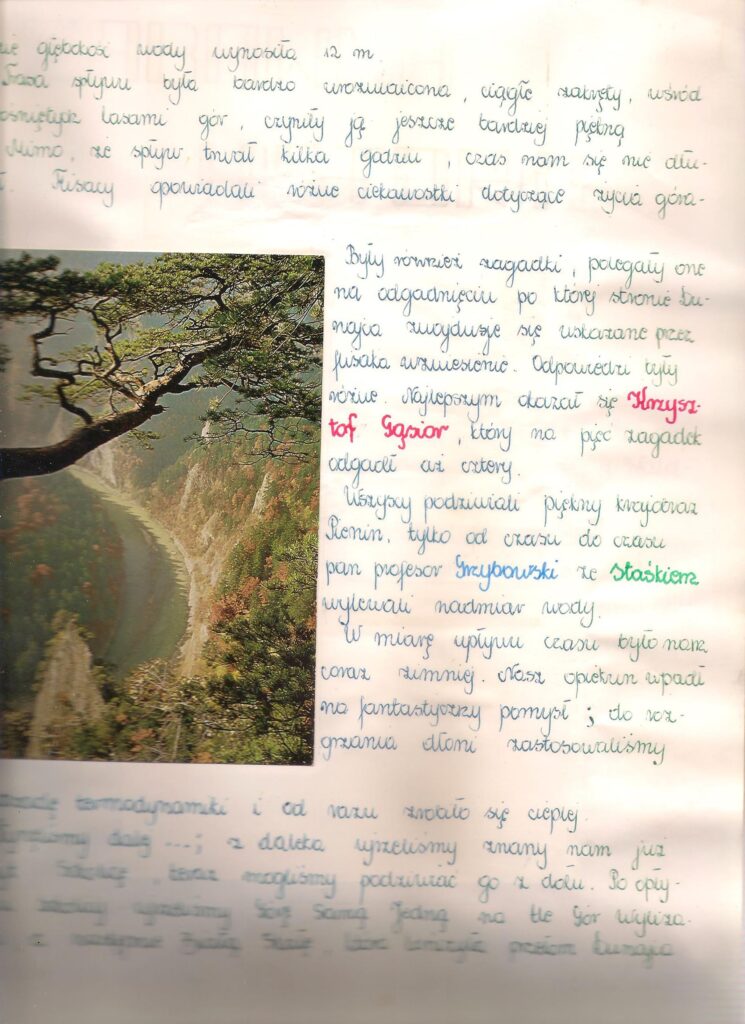 głębokość wody wynosiła 12 m.
Trasa spływu była bardzo urozmaicona, ciągłe zakręty, wśród
lasami gór, czyniły ją jeszcze bardziej piękną
Mimo, że spływ trwał kilka godzin, czas nam się nie dłu-
Flisacy opowiadali różne ciekawostki dotyczące życia góra-
Były również zagadki, polegały one
na odgadnięciu po której stronie Du-
najca znajduje się wskazane przez
flisaka wzniesienie. Odpowiedzi były
różne. Najlepszym okazał się Krzysz-
tof Gąsior, który na pięć zagadek
odgadł aż cztery.
Wszyscy podziwiali piękny krajobraz
Pienin, tylko od czasu do czasu
pan profesor Grzybowski ze Staśkiem
wylewali nadmiar wody.
W miarę upływu czasu było nam
coraz zimniej. Nasz opiekun wpadł
na fantastyczny pomysł; do roz-
grzania dłoni zastosowaliśmy
termodynamiki i od razu zrobiło się cieplej.
dalej ...; z daleka ujrzeliśmy znany nam już
Sokolicę, teraz mogliśmy podziwiać go z dołu. Po opły-
ujrzeliśmy Górę Samą Jedną na tle Gór
a następnie Białą Skałę, która kończyła przełom Dunajca